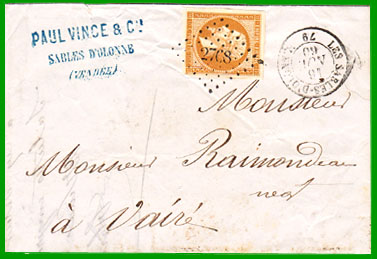 PAUL VINCE & Cie
SABLES D'OLONNE
(VENDÉE)
2768
LES SABLES-D'OLONNE
79
60
Monsieur
Monsieur Raimondeau
negt
à Vairé